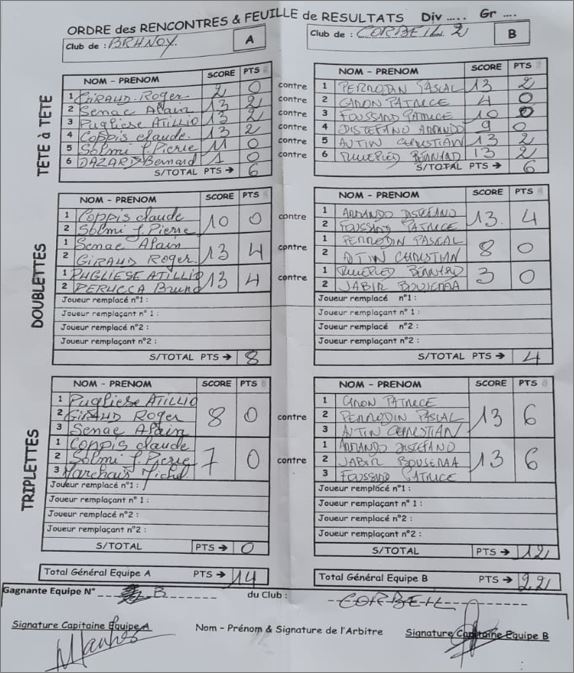 ORDRE des RENCONTRES & FEUILLE de RESULTATS Div ..... Gr .....
Club de : BRUNOY. A Club de : CORBEIL 2 B
TETE à TETE
NOM - PRENOM SCORE PTS contre NOM - PRENOM SCORE PTS
1 GIRAUD Roger 2 0 contre 1 PERRODIN PASCAL 13 2
2 Senac Alain 13 2 contre 2 CANON PATRICE 4 0
3 Pugliese ATILLIO 13 2 contre 3 FOUSSARD PATRICE 10 0
4 Coppis claude 13 2 contre 4 DISTEFANO ARMANDO 9 0
5 Solmi J. Pierre 11 0 contre 5 AUTIN CHRISTIAN 13 2
6 DAZARD Bernard 1 0 contre 6 BERNARD 13 2
S/TOTAL PTS → 6 S/TOTAL PTS → 6
DOUBLETTES
NOM - PRENOM SCORE PTS NOM - PRENOM SCORE PTS
1 Coppis claude 1 ARMANDO DISTEFANO
2 Solmi J. Pierre 10 0 contre 2 FOUSSARD PATRICE 13 4
1 Senac Alain 1 PERRODIN PASCAL
2 GIRAUD Roger 13 4 contre 2 AUTIN CHRISTIAN 8 0
1 PUGLIESE ATILLIO 1 BERNARD
2 PERUCCA Bruno 13 4 contre 2 JABIR BOUSEMA 3 0
Joueur remplacé n°1 : Joueur remplacé n°1 :
Joueur remplaçant n° 1 : Joueur remplaçant n°1 :
Joueur remplacé n°2 : Joueur remplacé n°2 :
Joueur remplaçant n°2 : Joueur remplaçant n°2 :
S/TOTAL PTS → 8 S/TOTAL PTS → 4
TRIPLETTES
NOM - PRENOM SCORE PTS NOM - PRENOM SCORE PTS
1 Pugliese ATILLIO 1 CANON PATRICE
2 GIRAUD Roger 8 0 contre 2 PERRODIN PASCAL 13 6
3 Senac Alain 3 AUTIN CHRISTIAN
1 Coppis claude 1 ARMANDO DISTEFANO
2 Solmi J. Pierre 7 0 contre 2 JABIR BOUSEMA 13 6
3 Michel 3 FOUSSARD PATRICE
Joueur remplacé n°1 : Joueur remplacé n°1 :
Joueur remplaçant n°1 : Joueur remplaçant n°1 :
Joueur remplacé n°2 : Joueur remplacé n°2 :
Joueur remplaçant n°2 : Joueur remplaçant n°2 :
S/TOTAL PTS → 0 S/TOTAL PTS → 12
Total Général Equipe A PTS → 14 Total Général Equipe B PTS → 22
Gagnante Equipe N° B du Club : CORBEIL
Signature Capitaine Equipe A Nom - Prénom & Signature de l'Arbitre Signature Capitaine Equipe B